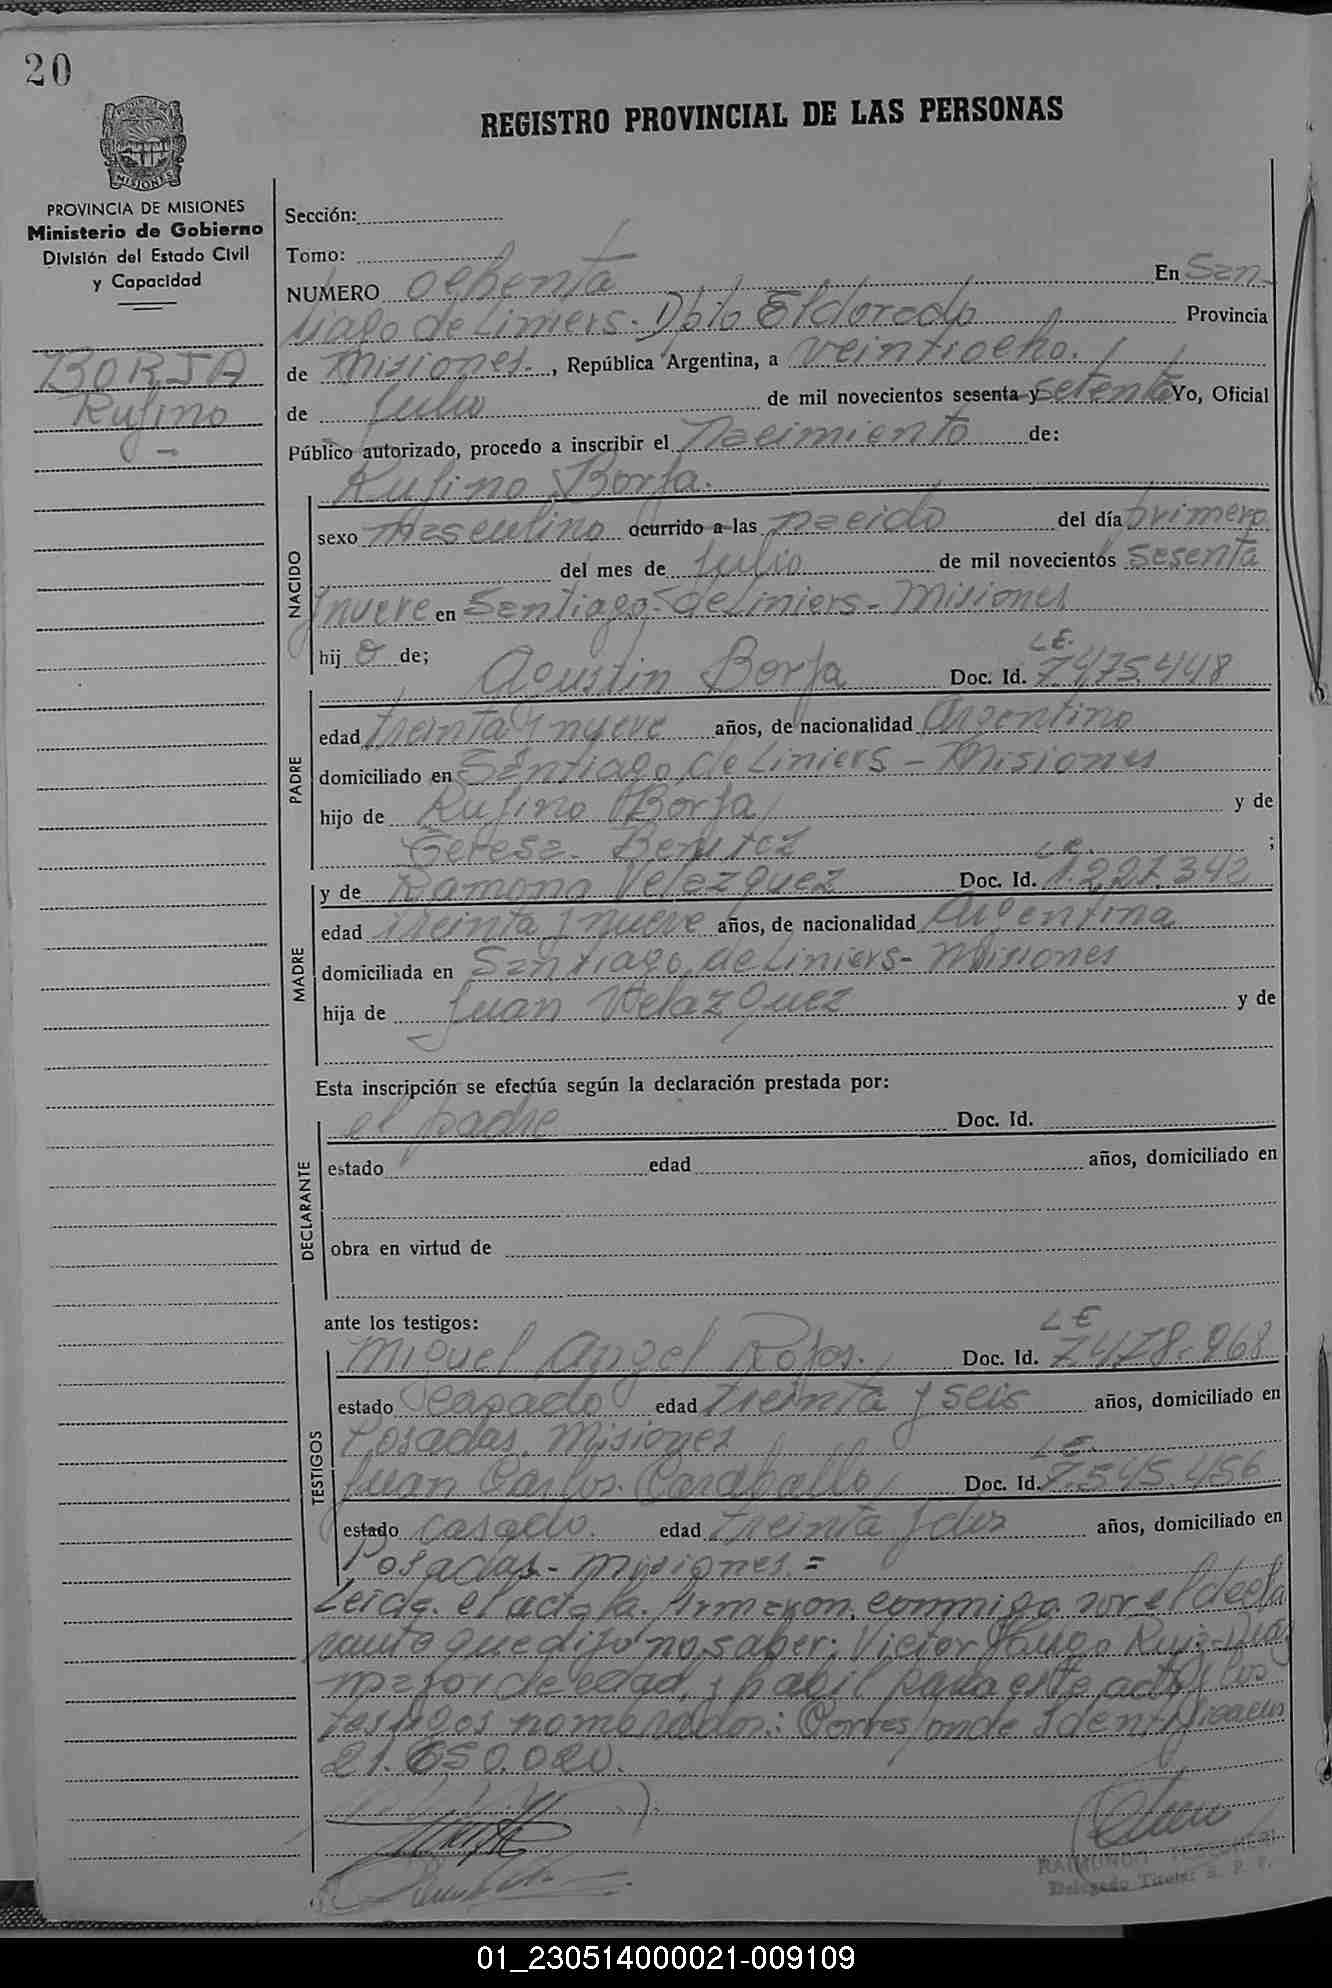 20
PROVINCIA DE MISIONES
Ministerio de Gobierno
División del Estado Civil
y Capacidad
BORJA
Rufino
REGISTRO PROVINCIAL DE LAS PERSONAS
Sección:
Tomo:
NUMERO Ochenta En San-
tiago de Liniers. Dpto Eldorado Provincia
de Misiones. , República Argentina, a veintiocho.
de Julio de mil novecientos sesenta y setenta Yo, Oficial
Público autorizado, procedo a inscribir el Nacimiento de:
Rufino Borja.
NACIDO
sexo Masculino ocurrido a las nacido del día primero
del mes de Julio de mil novecientos sesenta
y nueve en Santiago de Liniers - Misiones
hij o de;
L.E.
Agustin Borja Doc. Id. 7.475.448
PADRE
edad treinta y nueve años, de nacionalidad Argentino
domiciliado en Santiago de Liniers - Misiones
hijo de Rufino Borja y de
Teresa. Benitez ;
MADRE
y de Ramona Velazquez Doc. Id. 1.221.342
edad treinta y nueve años, de nacionalidad Argentina
domiciliada en Santiago de Liniers - Misiones
hija de Juan Velazquez y de
Esta inscripción se efectúa según la declaración prestada por:
el padre Doc. Id.
DECLARANTE
estado edad años, domiciliado en
obra en virtud de
ante los testigos:
L E
Miguel Angel Rojas. Doc. Id. 7.478.968
TESTIGOS
estado casado edad treinta y seis años, domiciliado en
Posadas. Misiones
L.E.
Juan Carlos Caraballo Doc. Id. 7.545.456
estado casado. edad treinta y dos años, domiciliado en
Posadas - Misiones. =
Leida el acta la firmaron conmigo por el decla
rante que dijo no saber: Victor Hugo Ruiz Diaz
mayor de edad y habil para este acto y los
testigos nombrados: Corresponde Identificacion
21.650.020.
RAIMUNDO
Delegado Titular R. P. P.
01_230514000021-009109